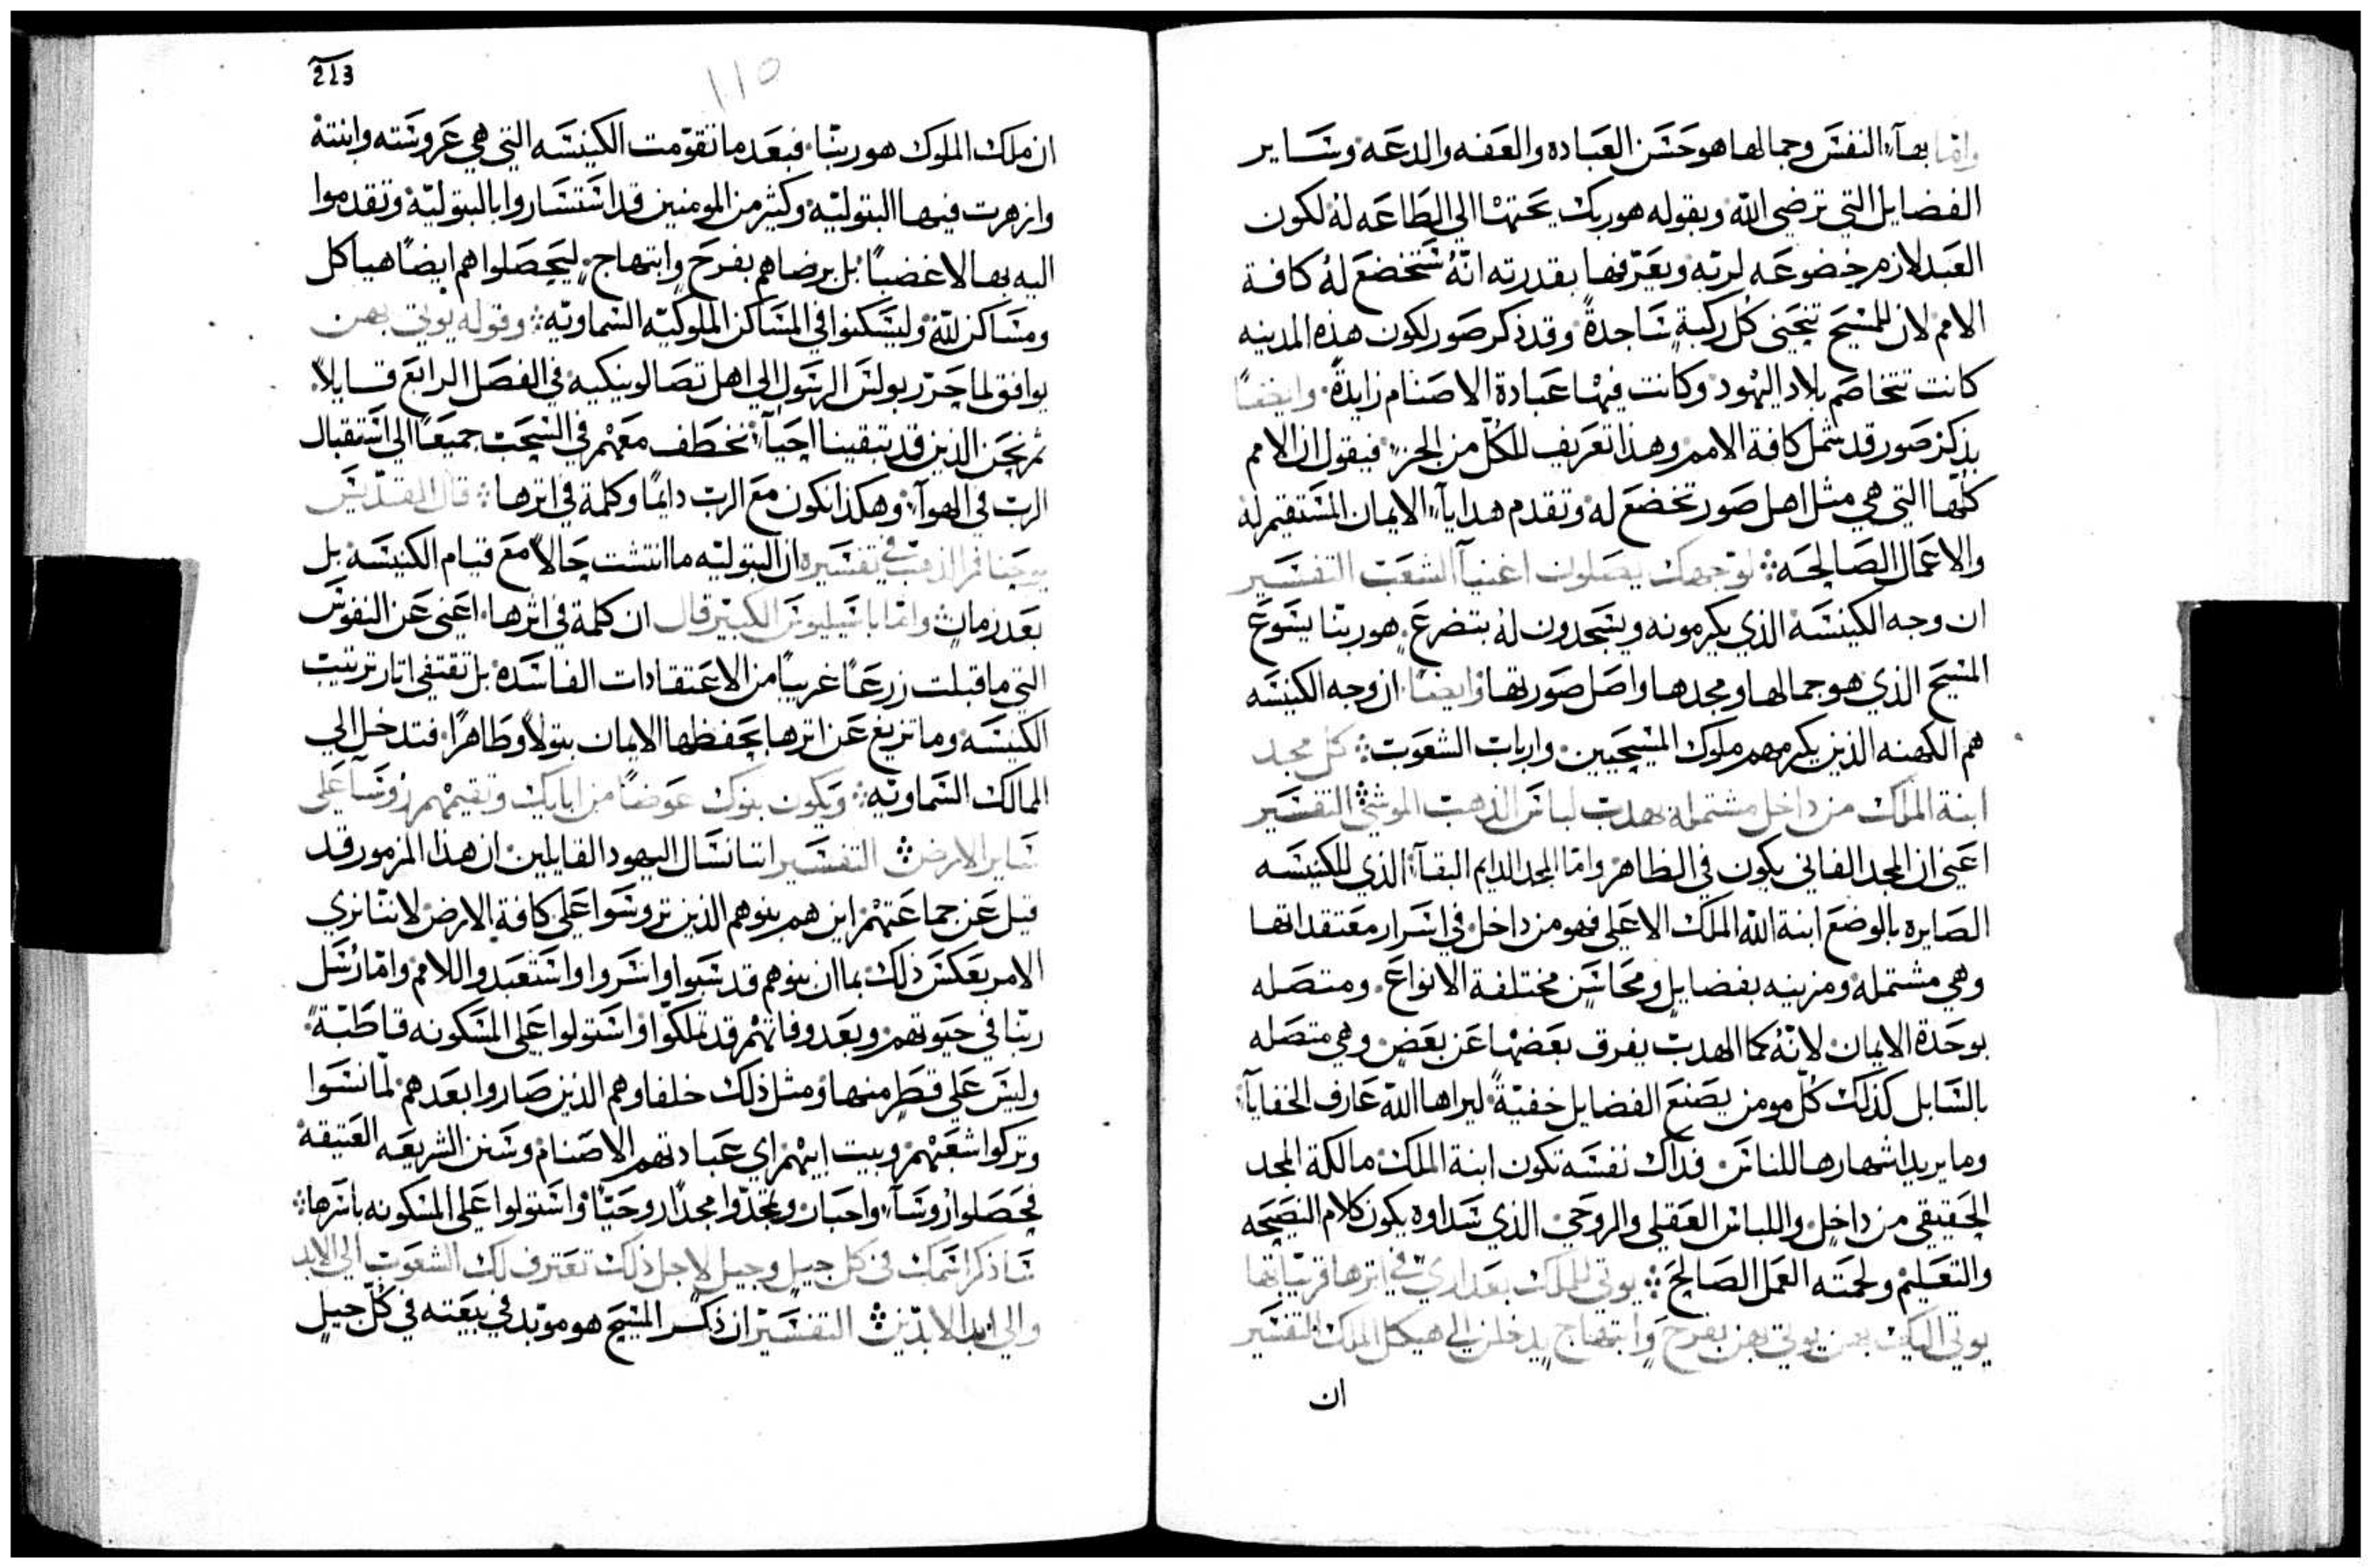 واما بهآء النفس وجمالها هو حسن العباده والعفه والدعه وساير
الفضايل التي ترضي الله وبقوله هو ربك يحتها الي الطاعه له لكون
العبد لازم خضوعه لربه ويعرفها بقدرته انهُ ستخضع لهُ كافة
الامم لان للمسيح تنحني كُل ركبةٍ ساجدةً وقد ذكر صور لكون هذه المدينه
كانت تتخاصم بلاد اليهود وكانت فيها عبادة الاصنام زايدةً وايضًا
بذكر صور قد شمل كافة الامم وهذا تعريف للكلّ من الجزء فيقول ان الامم
كلها التي هي مثل اهل صور تخضع له وتقدم هدايآء الايمان المستقيم له
والاعمال الصالحه لوجهك يصلون اغنيآ الشعب التفسير
ان وجه الكنيسه الذي يكرمونه ويسجدون لهُ بتضرع هو ربنا يسوع
المسيح الذي هو جمالها ومجدها واصل صورتها وايضًا ان وجه الكنيسه
هم الكهنه الذين يكرمهم ملوك المسيحيين وارباب الشعوب كل مجد
ابنة الملك من داخل مشتمله بهدب لباس الذهب الموشي التفسير
اعني ان المجد الفاني يكون في الظاهر واما المجد الدايم البقآء الذي للكنيسه
الصايره بالوضع ابنة الله الملك الاعلي فهو من داخل في اسرار معتقداتها
وهي مشتمله ومزينه بفضايل ومحاسن مختلفة الانواع ومتصله
بوحدة الايمان لانّهُ كما الهدب يفرق بعضها عن بعض وهي متصله
بالسابل كذلك كُل مومن يصنع الفضايل خفيةً ليراها الله عارف الخفايآ
وما يريد اشهارها للناس فذاك نفسه تكون ابنة الملك مالكة المجد
الحقيقي من داخل واللباس العقلي والروحي الذي سداوه يكون كلام النصيحه
والتعليم ولحمته العمل الصالح يوتي للملك بعداري في اثرها قريباتها
يوتي اليك بهن يوتي بهن بفرح وابتهاج يدخلن الي هيكل الملك التفسير
ان
213
١١٥
ان ملك الملوك هو ربنا فبعد ما تقومت الكنيسه التي هي عروسته وابنتة
وازهرت فيها البتوليه وكثير من المومنين قد استساروا بالبتوليّة وتقدموا
اليه بها لا غضبًا بل برضاهم بفرح وابتهاج ليحصلوا هم ايضًا هياكل
ومساكن لله وليسكنوا في المساكن الملوكيّه السماويّه وقوله يوتي بهن
يوافق لما حرّر بولس الرسول الي اهل تصالونيكيه في الفصل الرابع قايلاً
ثم نحن الذين قد تبقينا احيآء نخطف معهم في السحب جميعًا الي استقبال
الرب في الهوآء وهكذا نكون مع الرب دايمًا وكلمة في اثرها قال القديس
يوحنا فم الذهب في تفسيره ان البتوليه ما انتشت حالاً مع قيام الكنيسه بل
بعد زمان واما باسيليوس الكبير قال ان كلمة في اثرها اعني عن النفوس
التي ما قبلت زرعًا غريبًا من الاعتقادات الفاسده بل تقتفي اثار ترتيب
الكنيسه وما تزيغ عن اثرها يحفظها الايمان بتولاً وطاهرًا فتدخل الي
الممالك السماويّه ويكون بنوك عوضًا من ابايك وتقيمهم رؤسآ علي
ساير الارض التفسير اننا نسال اليهود القايلين ان هذا المزمور قد
قيل عن جماعتهم اين هم بنوهم الذين تروسوا علي كافة الارض لاننا نري
الامر بعكس ذلك بما ان بنوهم قد سبوا واسروا واستعبدوا للامم واما رسل
ربنا في حيوتهم وبعد وفاتهم قد تملكوا واستولوا علي المسكونه قاطبةً
وليس علي قطر منها ومثل ذلك خلفاوهم الذين صاروا بعدهم لما نسوا
وتركوا شعبهم وبيت ابيهم اي عباداتهم الاصنام وسنن الشريعه العتيقة
فحصلوا رؤسآء واحبار وتمجدوا مجدًا روحيًا واستولوا علي المسكونه باسرها
ساذكر اسمك في كل جيل وجيل لاجل ذلك تعترف لك الشعوب الي الابد
والي ابد الابدين التفسير ان ذكر المسيح هو موبد في بيعته في كُل جيل